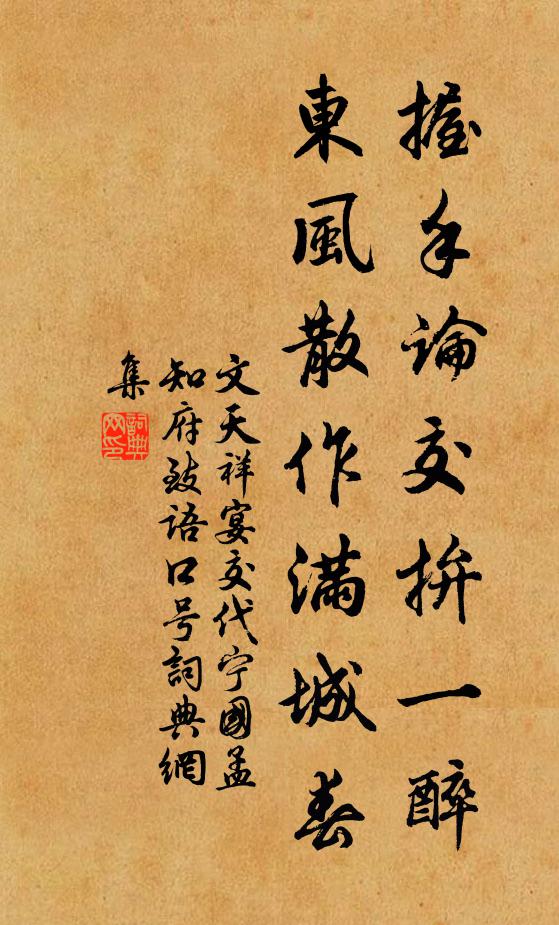 握手論交拚一醉
東風散作滿城春
文天祥宴交代宁國孟
知府致語口号詞典網
集
詞典网印